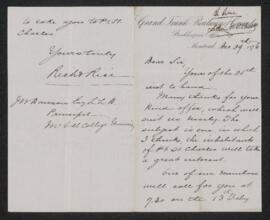 to take you to Pt St.
Charles
Yours truly
Richd Rice
J W Dawson Esq L L D
Principal
McGill College
Grand Trunk Railway
Montreal, Dec 29th 187
Dear Sir
Yours of the 28th
is to hand.
Many thanks for your
kind offer, which will
suit us nicely. The
subject is one in which
I think the inhabitants
of Pt St Charles will take
a great interest.
One of our members
will call for you at
7.30 on the 13th Feby